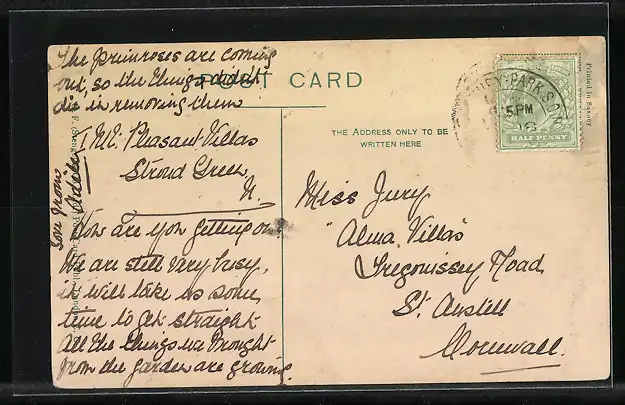 The primroses are coming
out, so the things didn't
die in removing them
POST CARD
Pleasant Villas
Stroud Green
N.
How are you getting on.
We are still very busy,
it will take us some
time to get straight
All the things we brought
from the garden are growing.
Love from
THE ADDRESS ONLY TO BE
WRITTEN HERE
Miss Jury
"Alma Villas"
Tregonissey Road
St. Austell
Cornwall.
PARK S.O.
5 PM
HALF PENNY
Printed in Saxony